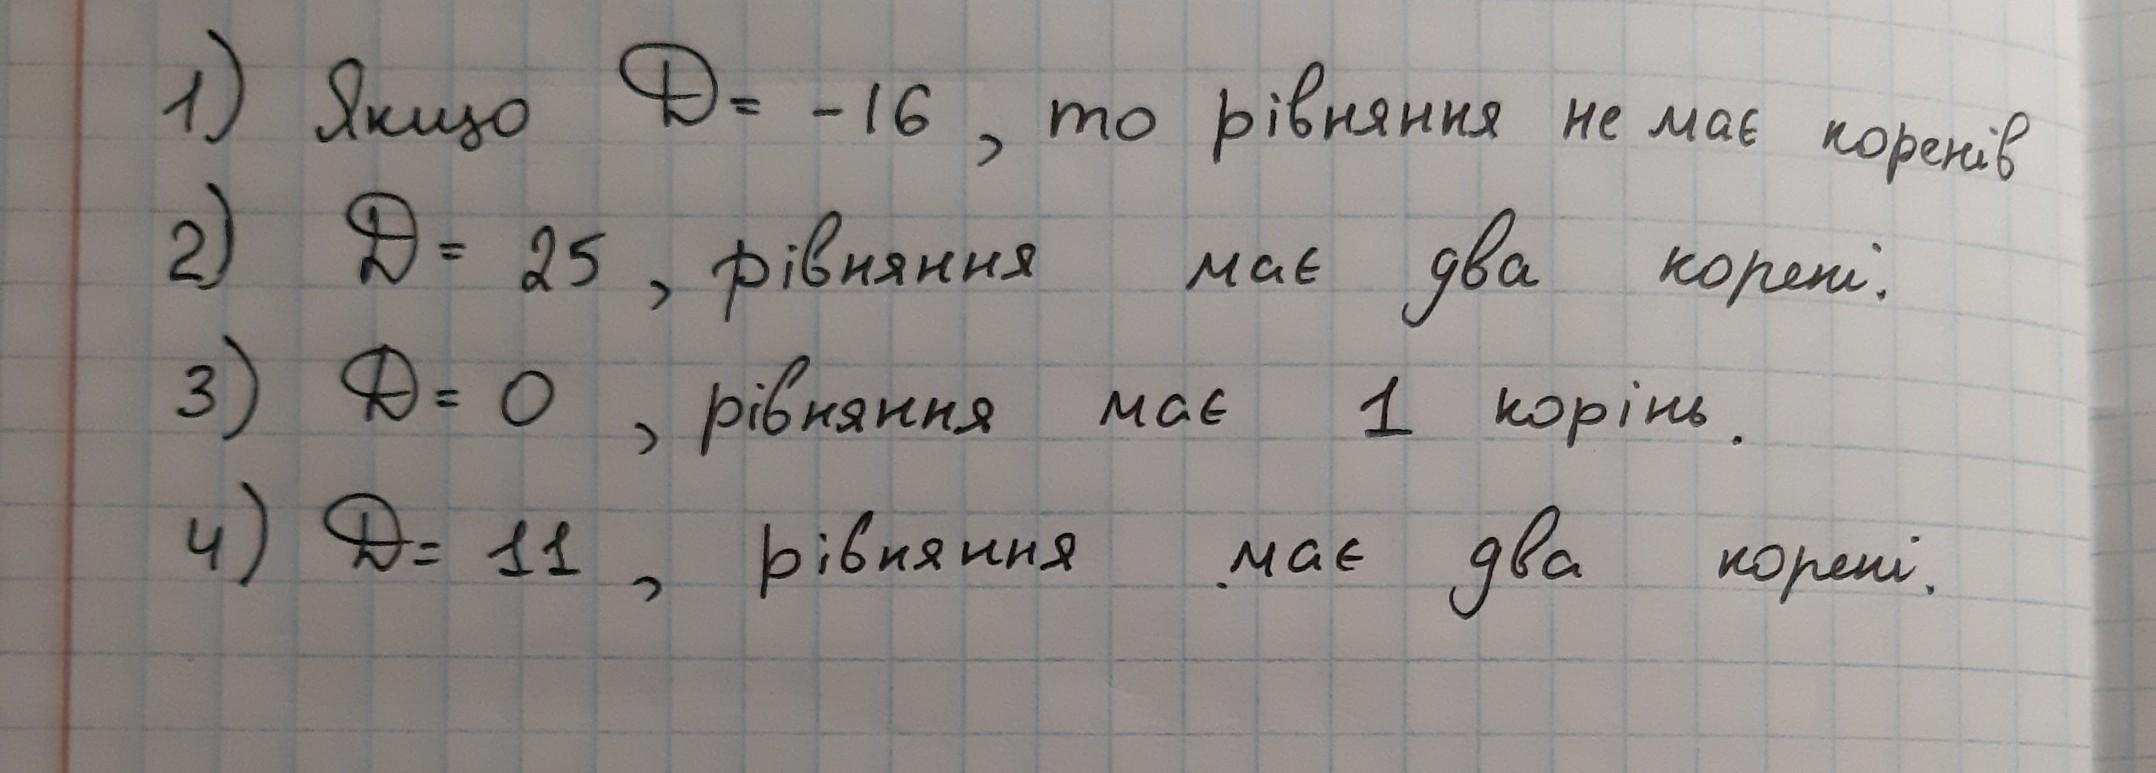 1) Якщо D = -16, то рівняння не має коренів
2) D = 25, рівняння має два корені.
3) D = 0, рівняння має 1 корінь.
4) D = 11, рівняння має два корені.